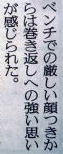 ベンチでの厳しい顔つきか
らは巻き返しへの強い思い
が感じられた。